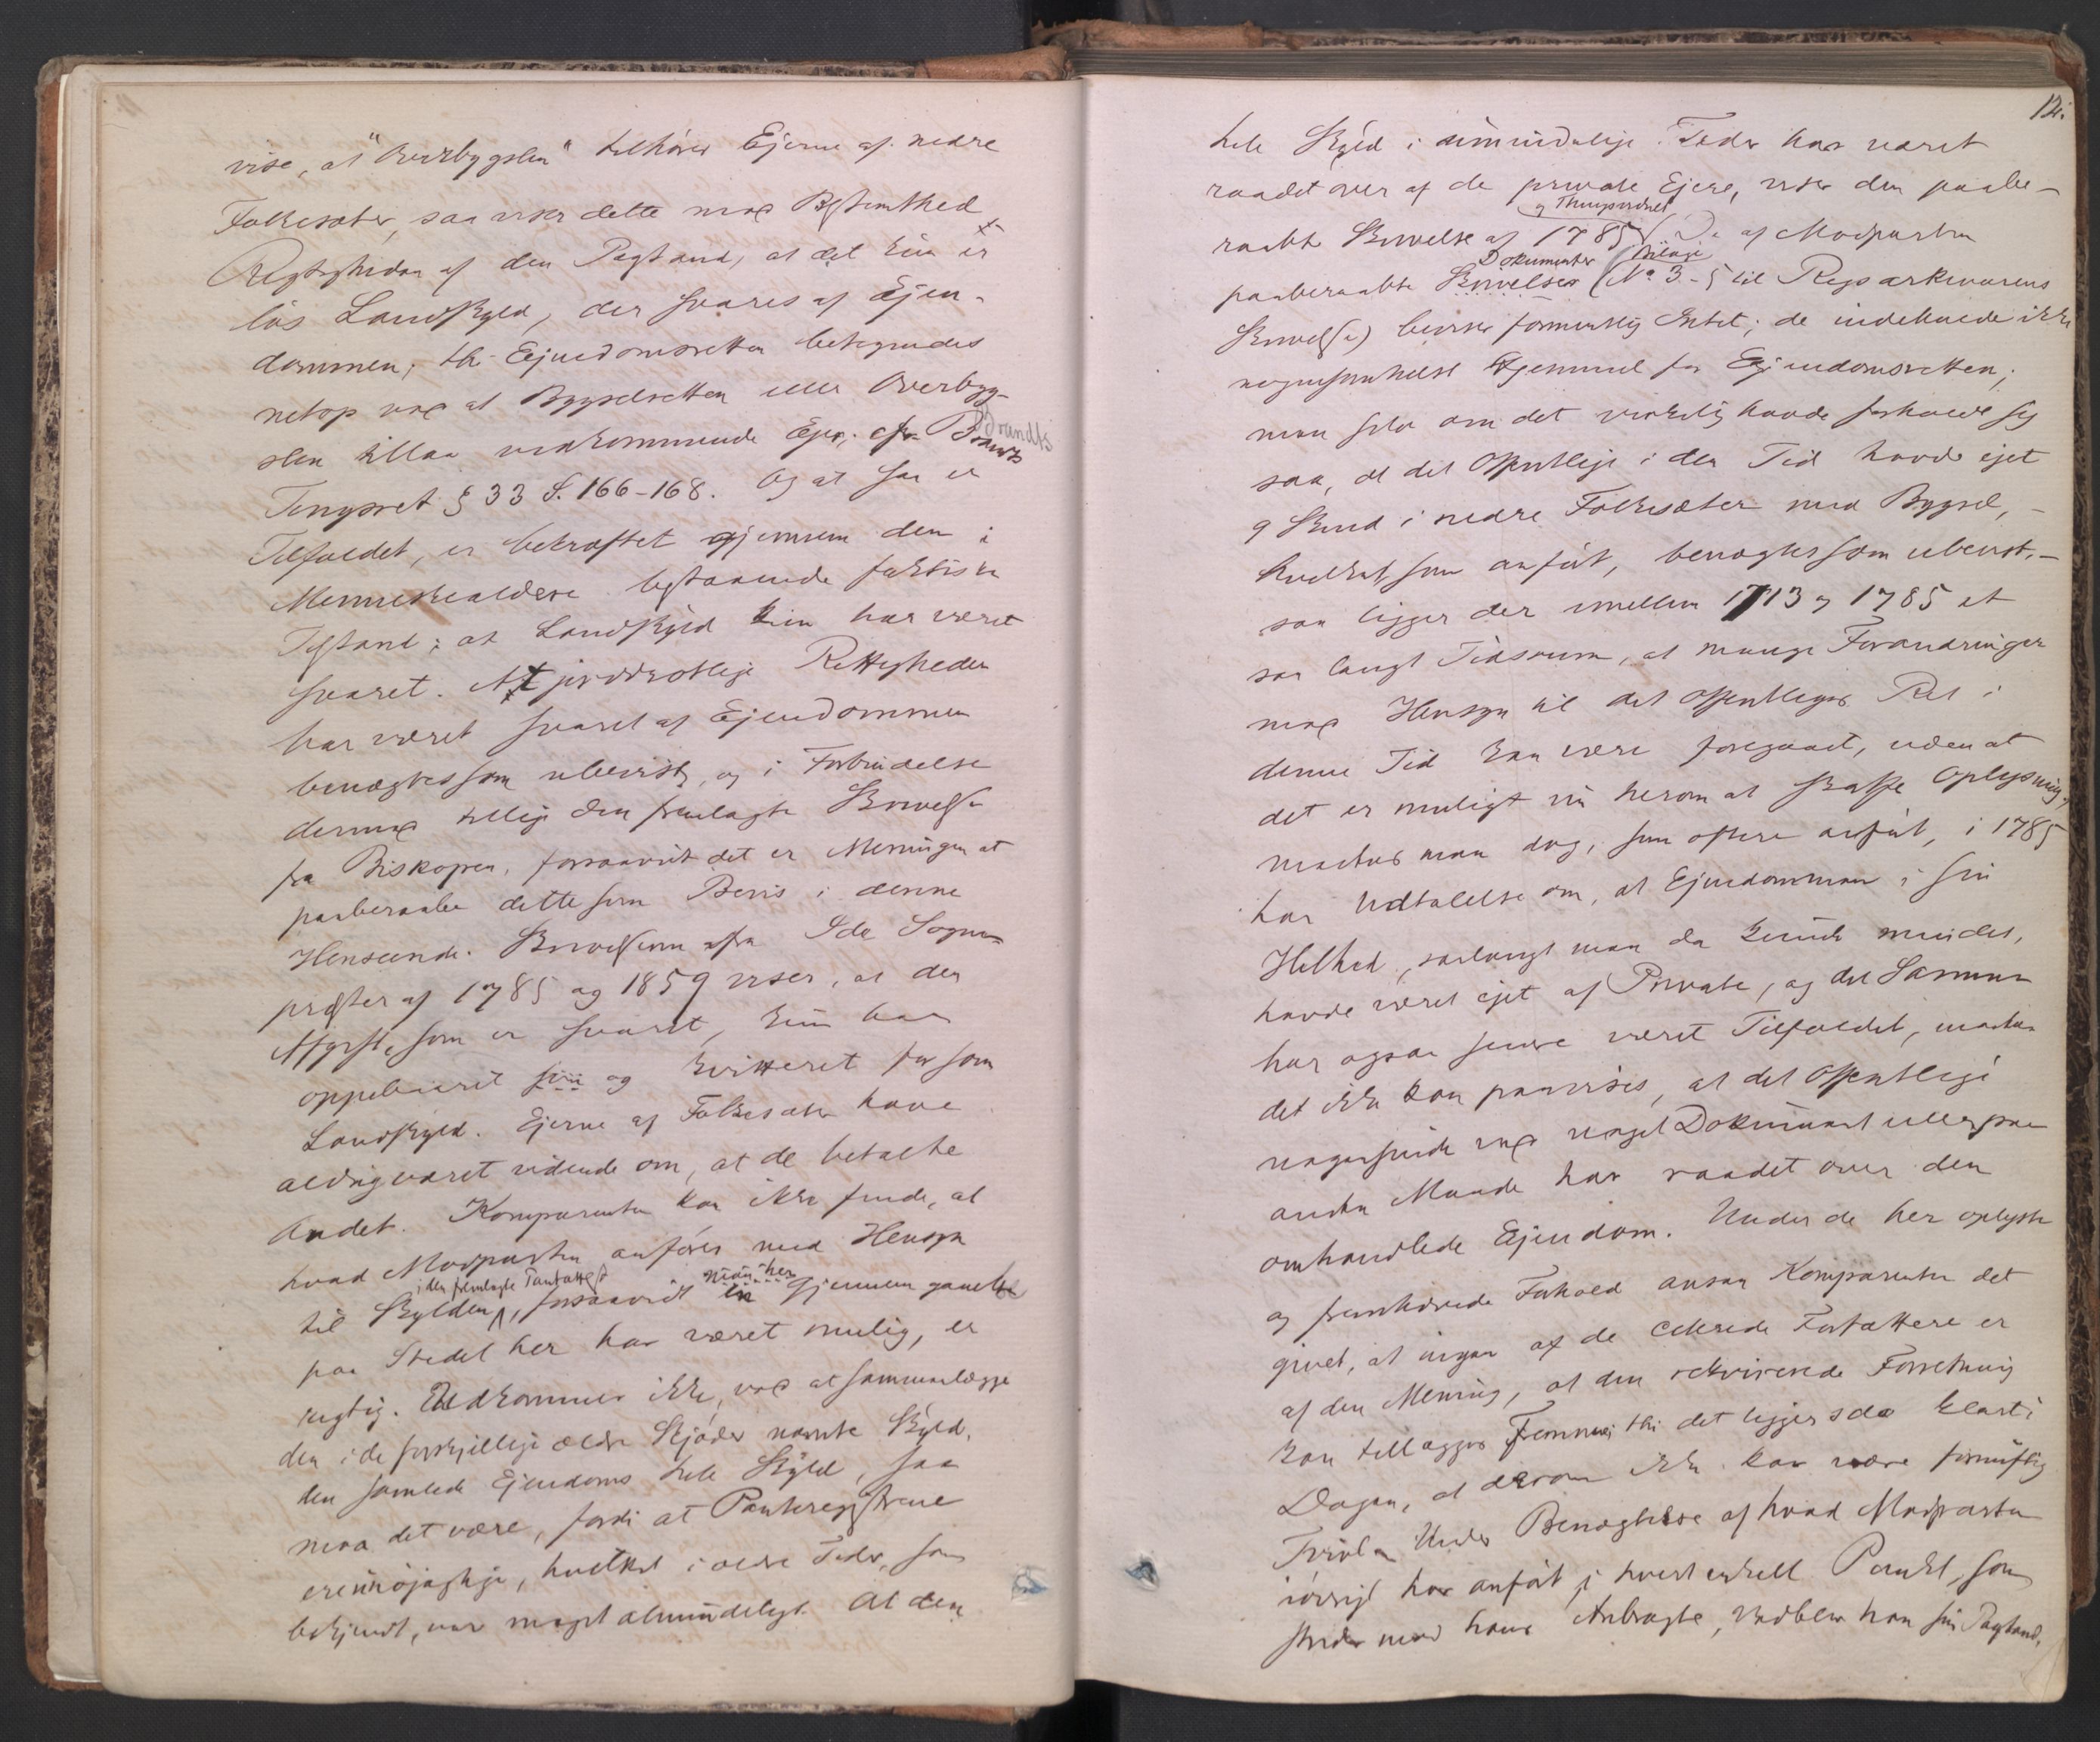 vise, at "Overbygslen" tilhører Ejerne af nedre
Folkesæter, saa viser dette med Bestemthed
Rigtigheden af den Paastand, at det kun er
løs Landskyld, der svares af Ejen-
dommen; thi Ejendomsretten betegnedes
netop ved at Bygselretten eller Overbyg-
slen tillaa vedkommende Ejer; cfr. Brandts
Tingsret § 33 S. 166-168. Og at saa er
Tilfældet, er bekræftet gjennem den i
Menneskealdere bestaaende faktiske
Tilstand; at Landskyld kun har været
svaret. At jorddrotlige Rettigheder
har været svaret af Ejendommen
benægtes som ubevist, og i Forbindelse
dermed tillige den fremlagte Skrivelse
fra Biskopen, forsaavidt det er Meningen at
paaberaabe dette som Bevis i denne
Henseende. Skrivelserne fra Ide Sogne-
præster af 1785 og 1859 viser, at den
Afgift, som er svaret, kun har
oppebaaret som og kvitteret for som
Landskyld. Ejerne af Folkesæter have
aldrig været vidende om, at de betalte
Andet. Komparenten kan ikke finde, at
hvad Modparten anfører med Hensyn
i den fremlagte Pantattest man her
til Skylden, forsaavidt en Gjennemgaaelse
paa Stedet her har været mulig, er
rigtig. Udkommer ikke, ved at sammenlægge
den i de forskjellige ældre Skjøder nævnte Skyld,
den samlede Ejendoms hele Skyld, saa
maa det være, fordi at Panteregistrene
ere unøjagtige, hvilket i ældre Tider, som
bekjendt, var meget almindeligt. At den
12.
hele Skyld i umindelige Tider har været
raadet over af de private Ejere, viser den paabe-
og Thingsvidnet
raabte Skrivelse af 1785. De af Modparten
Dokumenter Bilage
paaberaabte Skrivelser (No 3-5 til Rigsarkivarens
Skrivelse) beviser formentlig Intet; de indeholde ikke
nogensomhelst Hjemmel for Ejendomsretten;
men selv om det virkelig havde forholdt sig
saa, at det Offentlige i den Tid havde ejet
9 Skind i nedre Folkesæter med Bygsel, -
hvilket, som anført, benægtes som ubevist, -
saa ligger der imellem 1713 og 1785 et
saa langt Tidsrum, at mange Forandringer
med Hensyn til det Offentliges Ret i
denne Tid kan være foregaaet, uden at
det er muligt nu herom at skaffe Oplysning,
medens man dog, som oftere anført, i 1785
har Udtalelse om, at Ejendommen i sin
Helhed, saalangt man da kunde mindes,
havde været ejet af Private, og det Samme
har ogsaa senere været Tilfældet, medens
det ikke kan paavises, at det Offentlige
nogensinde ved noget Dokument eller paa
anden Maade har raadet over den
omhandlede Ejendom. Under de her oplyste
og fremhævede Forhold anser Komparenten det
givet, at ingen af de citerede Forfattere er
af den Mening, at den rekvirerede Forretning
kan tillægges Fremme; thi det ligger i da klart i
Dagen, at derom ikke kan være fornuftig
Tvivl. Under Benægtelse af hvad Modparten
iøvrigt har anført i hvert enkelt Punkt, som
strider mod hans Anbragte, vedblev han sin Paastand.